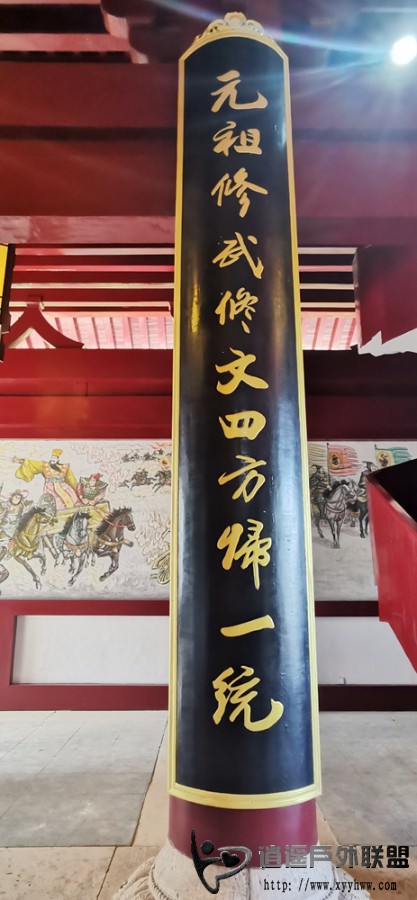 元祖修武修文四方歸一統
逍遥户外联盟
http://www.xyyhww.com